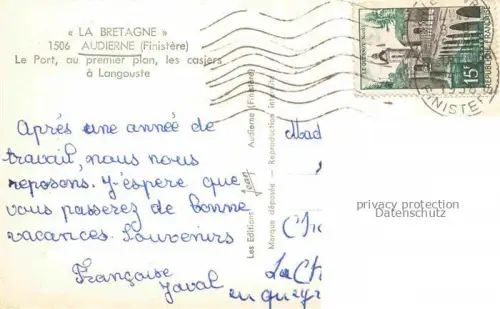 « LA BRETAGNE »
1506 AUDIERNE (Finistère)
Le Port, au premier plan, les casiers
à Langouste
Après une année de
travail, nous nous
reposons. J'espère que
vous passerez de bonne
vacances. Souvenirs
Françoise
Javal
Les Editions Jean Audierne (Finistère)
Marque déposée - Reproduction interdite
Mad
La Ch
en queyr
15F
REPUBLIQUE FRANÇAISE
FINISTERE
privacy protection
Datenschutz